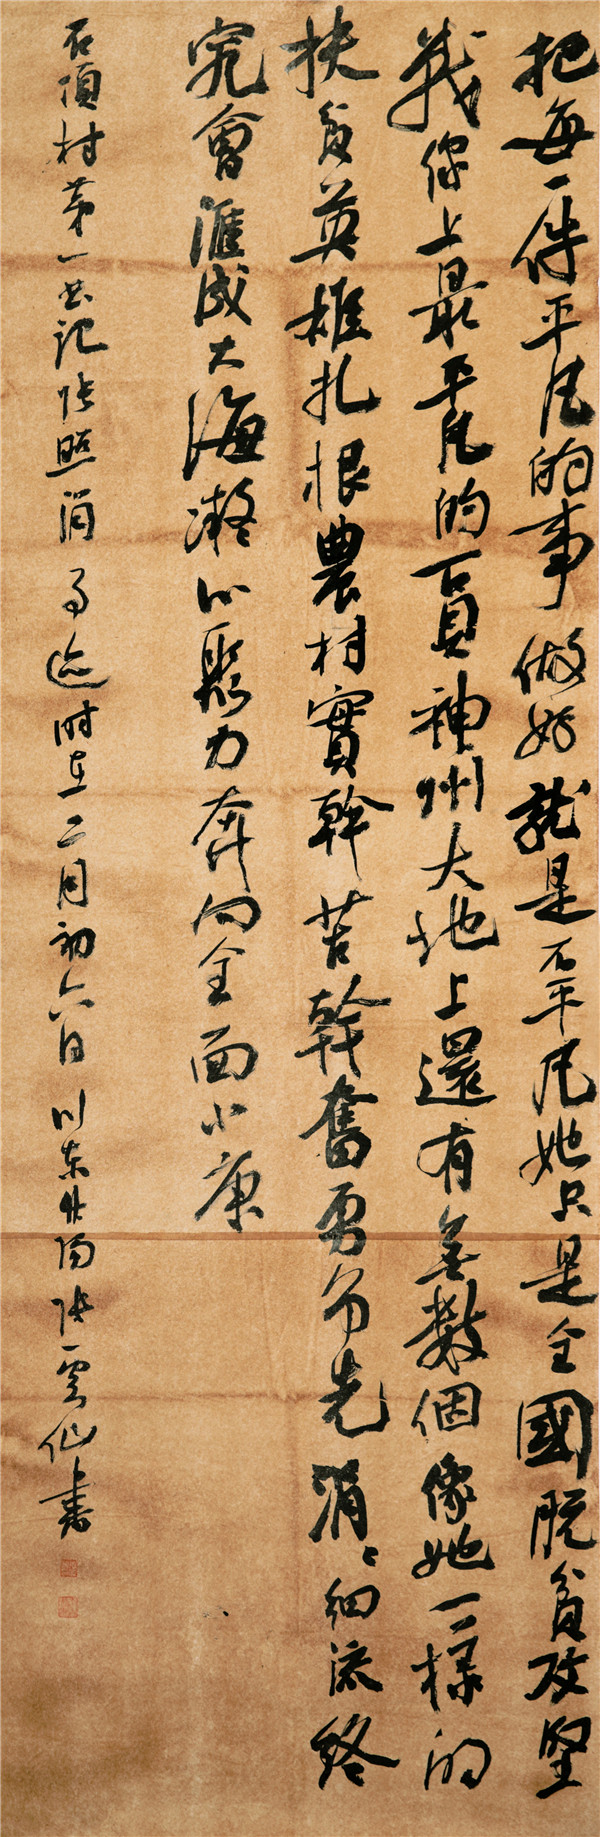 把每一件平凡的事做好就是不平凡她只是全國脱貧攻堅
戰線上最平凡的一員神州大地上還有無數個像她一樣的
扶貧英雄扎根農村實幹苦幹奮勇争先涓涓細流終
究會滙成大海凝心聚力奔向全面小康
石頂村第一书记张照涓事迹时在二月初六日川东北阆张雲仙書